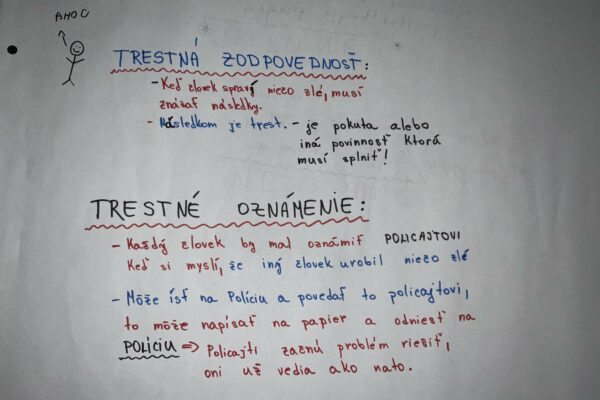 AHOJ
TRESTNÁ ZODPOVEDNOSŤ:
- Keď človek spraví niečo zlé, musí
znášať následky.
- Následkom je trest. - je pokuta alebo
iná povinnosť ktorá
musí splniť!
TRESTNÉ OZNÁMENIE:
- Každý človek by mal oznámiť POLICAJTOVI
Keď si myslí, že iný človek urobil niečo zlé
- Môže ísť na Políciu a povedať to policajtovi,
to môže napísať na papier a odniesť na
POLÍCIU => Policajti začnú problém riešiť,
oni už vedia ako nato.